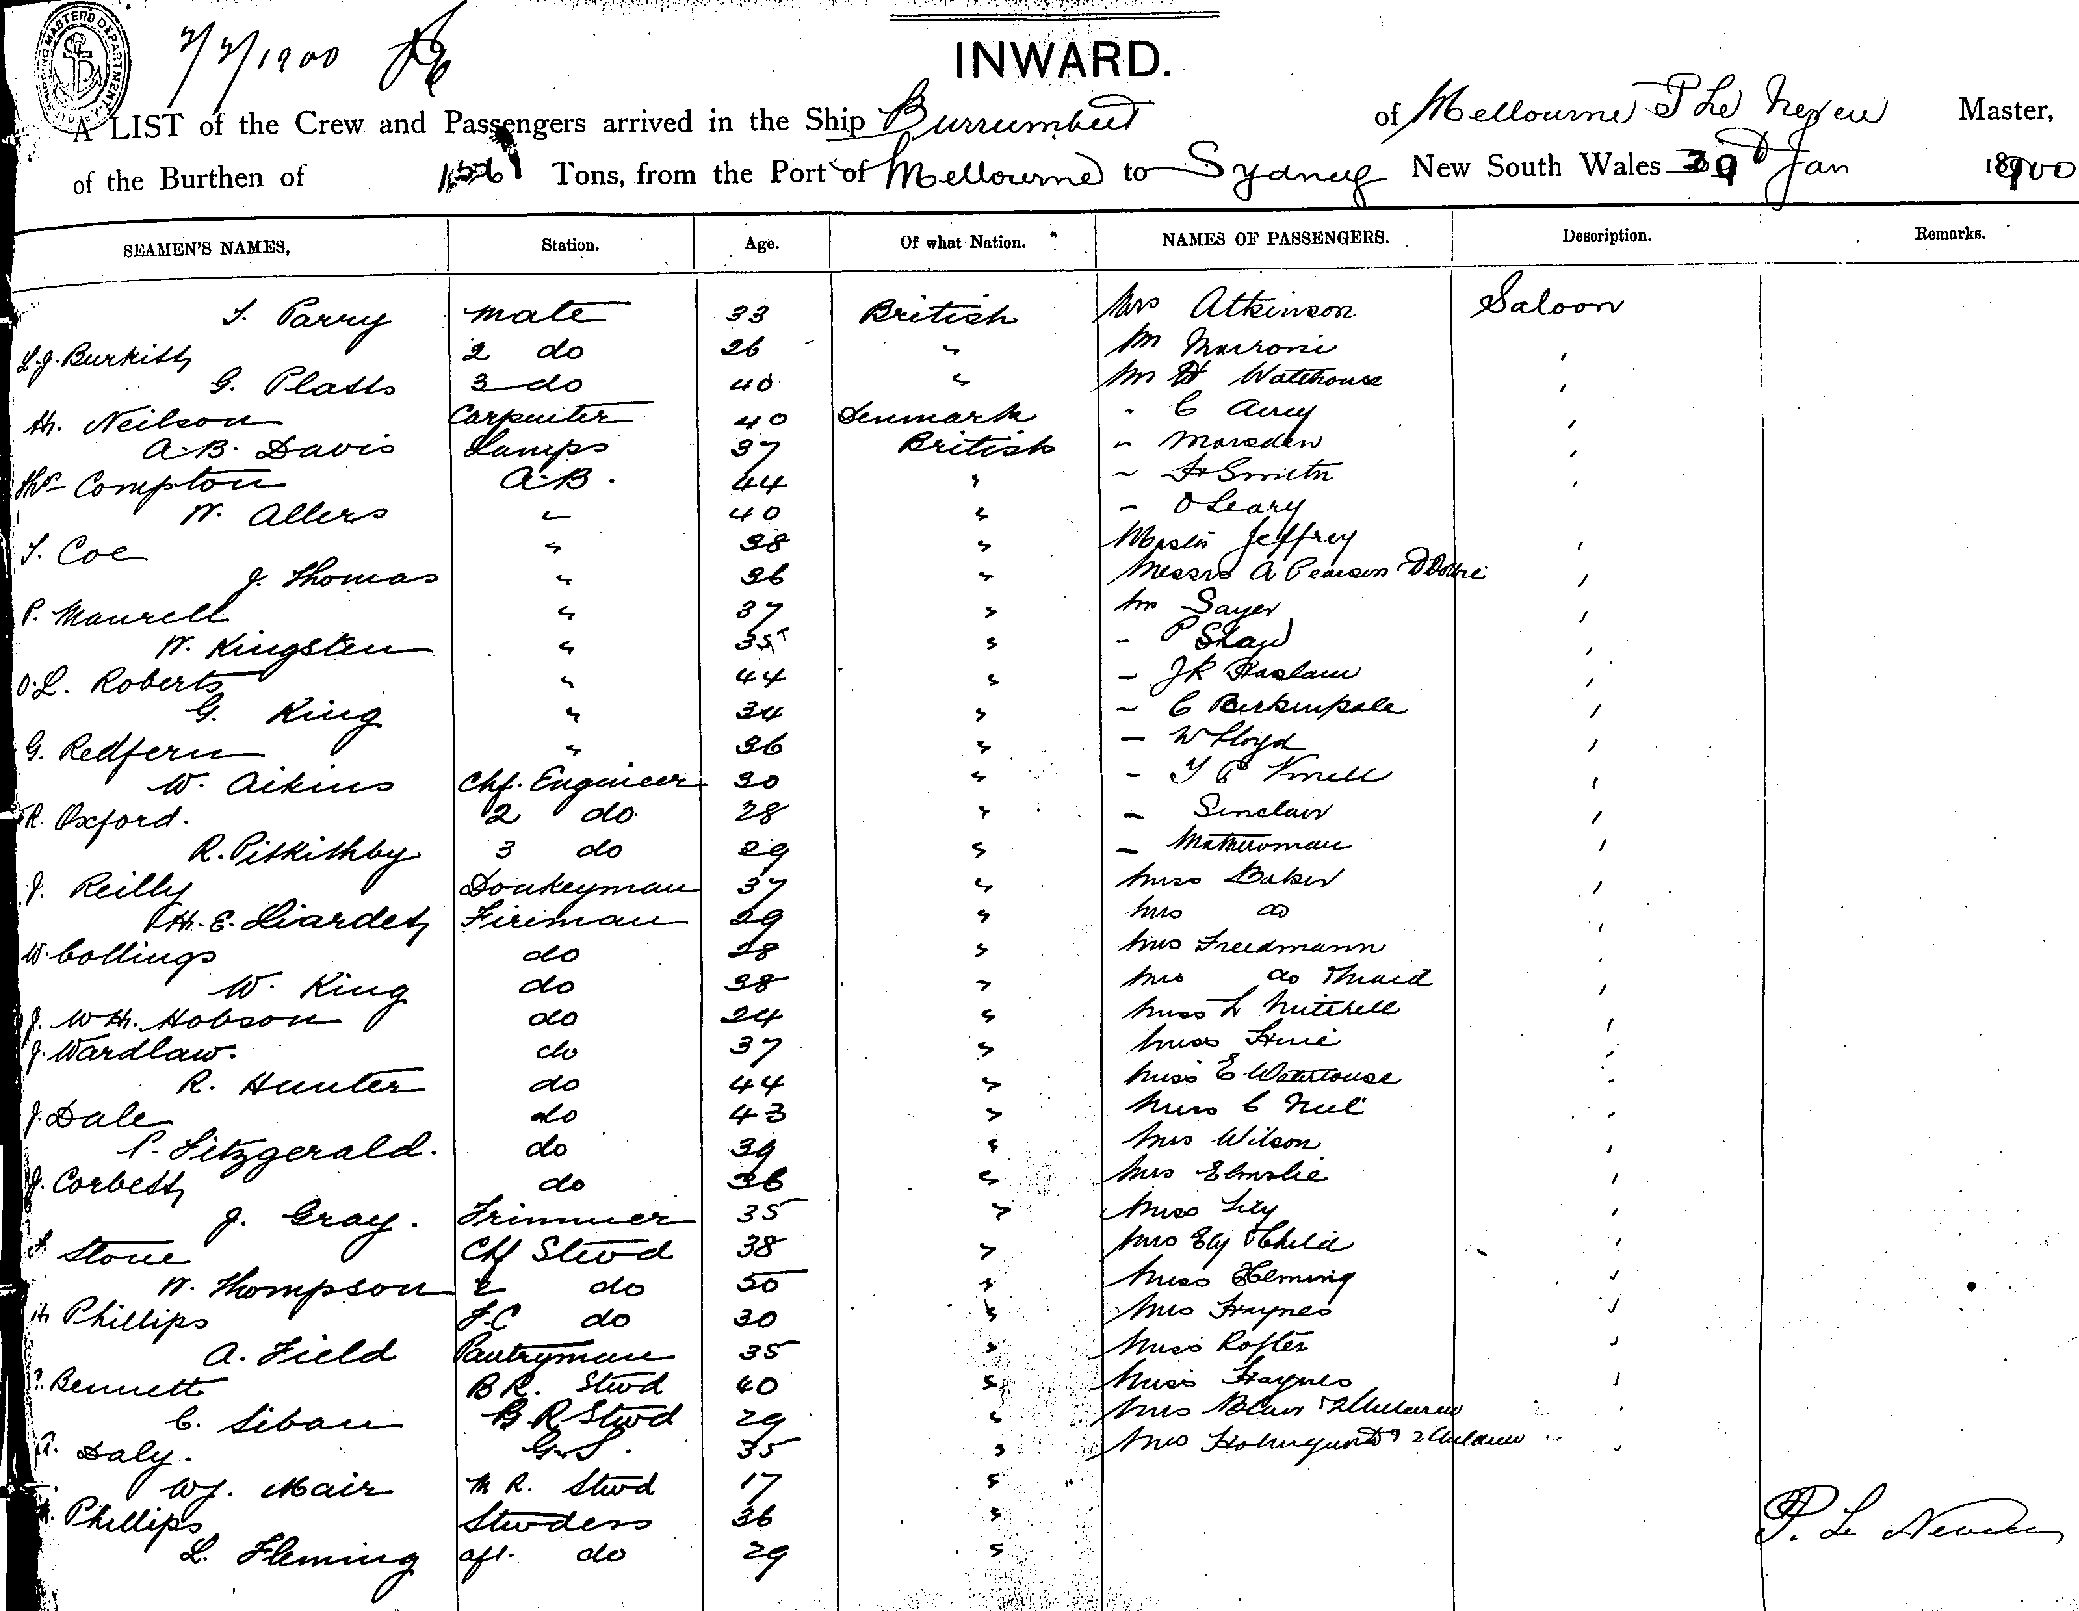 2/2/1900
INWARD.
A LIST of the Crew and Passengers arrived in the Ship Burrumbeet of Melbourne P Le Neveu Master,
of the Burthen of Tons, from the Port of Melbourne to Sydney New South Wales 30 Jan 1900
SEAMEN'S NAMES, Station. Age. Of what Nation. NAMES OF PASSENGERS. Description. Remarks.
S. Parry Mate 33 British Mrs Atkinson Saloon
Burkitt 2 do 26 " Mr Marroni '
G. Platts 3 do 40 " Mr H Watehouse '
H. Neilson Carpenter 40 Denmark " C Airey '
A.B. Davis Lamps 37 British " Marsden '
Thos Compton A.B. 44 " " Smith '
W. Allers " 40 " " O Leary
Coe " 38 " Master Jeffrey '
J. Thomas " 36 " Messrs A Pearson '
P. Maurell " 37 " Mr Sayer '
W. Kingsten " 35 " " P Shaw '
O.L. Roberts " 44 " " JR Haslam '
G. King " 34 " " C '
G. Redfern " 36 " " W Lloyd '
W. Aikins Chf. Engineer 30 " " '
R. Oxford. 2 do 28 " " Sinclair '
R. Pitkithby 3 do 29 " " '
J. Reilly Donkeyman 37 " Miss Baker '
H.E. Liardet Fireman 29 " Mrs do '
W. Collings do 28 " Mrs Freedmann '
W. King do 38 " Mrs do & Maid '
J. W H. Hobson do 24 " Miss L Mitchell '
J. Wardlaw. do 37 " Miss '
R. Hunter do 44 " Miss E Waterhouse '
J. Dale do 43 " Mrs C '
P. Fitzgerald. do 39 " Mrs Wilson '
J. Corbett do 36 " Mrs Elmslie '
J. Gray. Trimmer 35 " Miss Lily '
Stone Chf Stwd 38 " Mrs Ely & Child '
W. Thompson 2 do 50 " Miss Fleming '
H Phillips F.C do 30 " Mrs Haynes '
A. Field Pantryman 35 " Miss Rofter '
Bennett B R. Stwd 40 " Miss Haynes '
C. Siban B R Stwd 29 " Mrs Blair & 2 Children '
A. Daly. G.S. 35 " Mrs 2 Children '
W J. Mair M R. Stwd 17 "
Phillips Stwdess 36 "
L. Fleming aft. do 29 "
P. Le Neveu